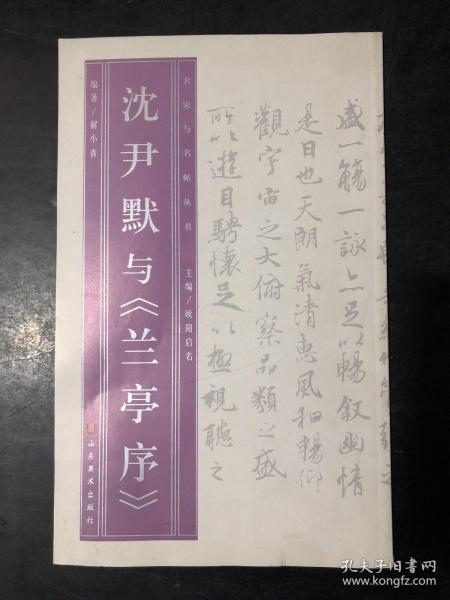 名家与名帖丛书 主编/欧阳启名
沈尹默与《兰亭序》
编著/解小青
山东美术出版社
盛一觴一詠亦足以暢敘幽情
是日也天朗氣清惠風和暢仰
觀宇宙之大俯察品類之盛
所以遊目騁懷足以極視聽之
孔夫子旧书网
www.kongfz.com